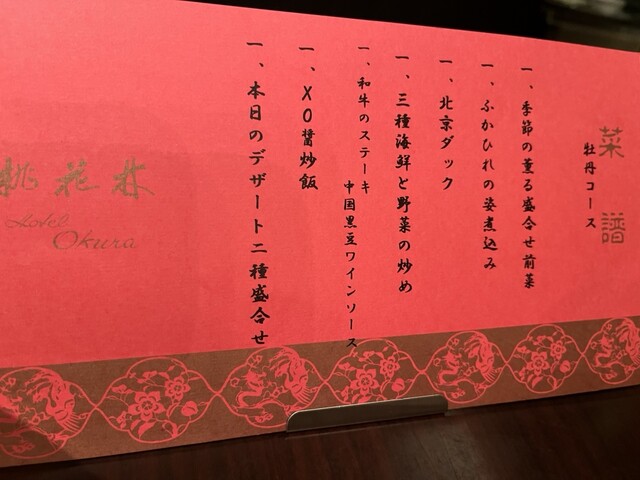 菜譜
牡丹コース
一、季節の薫る盛合せ前菜
一、ふかひれの姿煮込み
一、北京ダック
一、三種海鮮と野菜の炒め
一、和牛のステーキ
中国黒豆ワインソース
一、XO醤炒飯
一、本日のデザート二種盛合せ
桃花林
Hotel
Okura